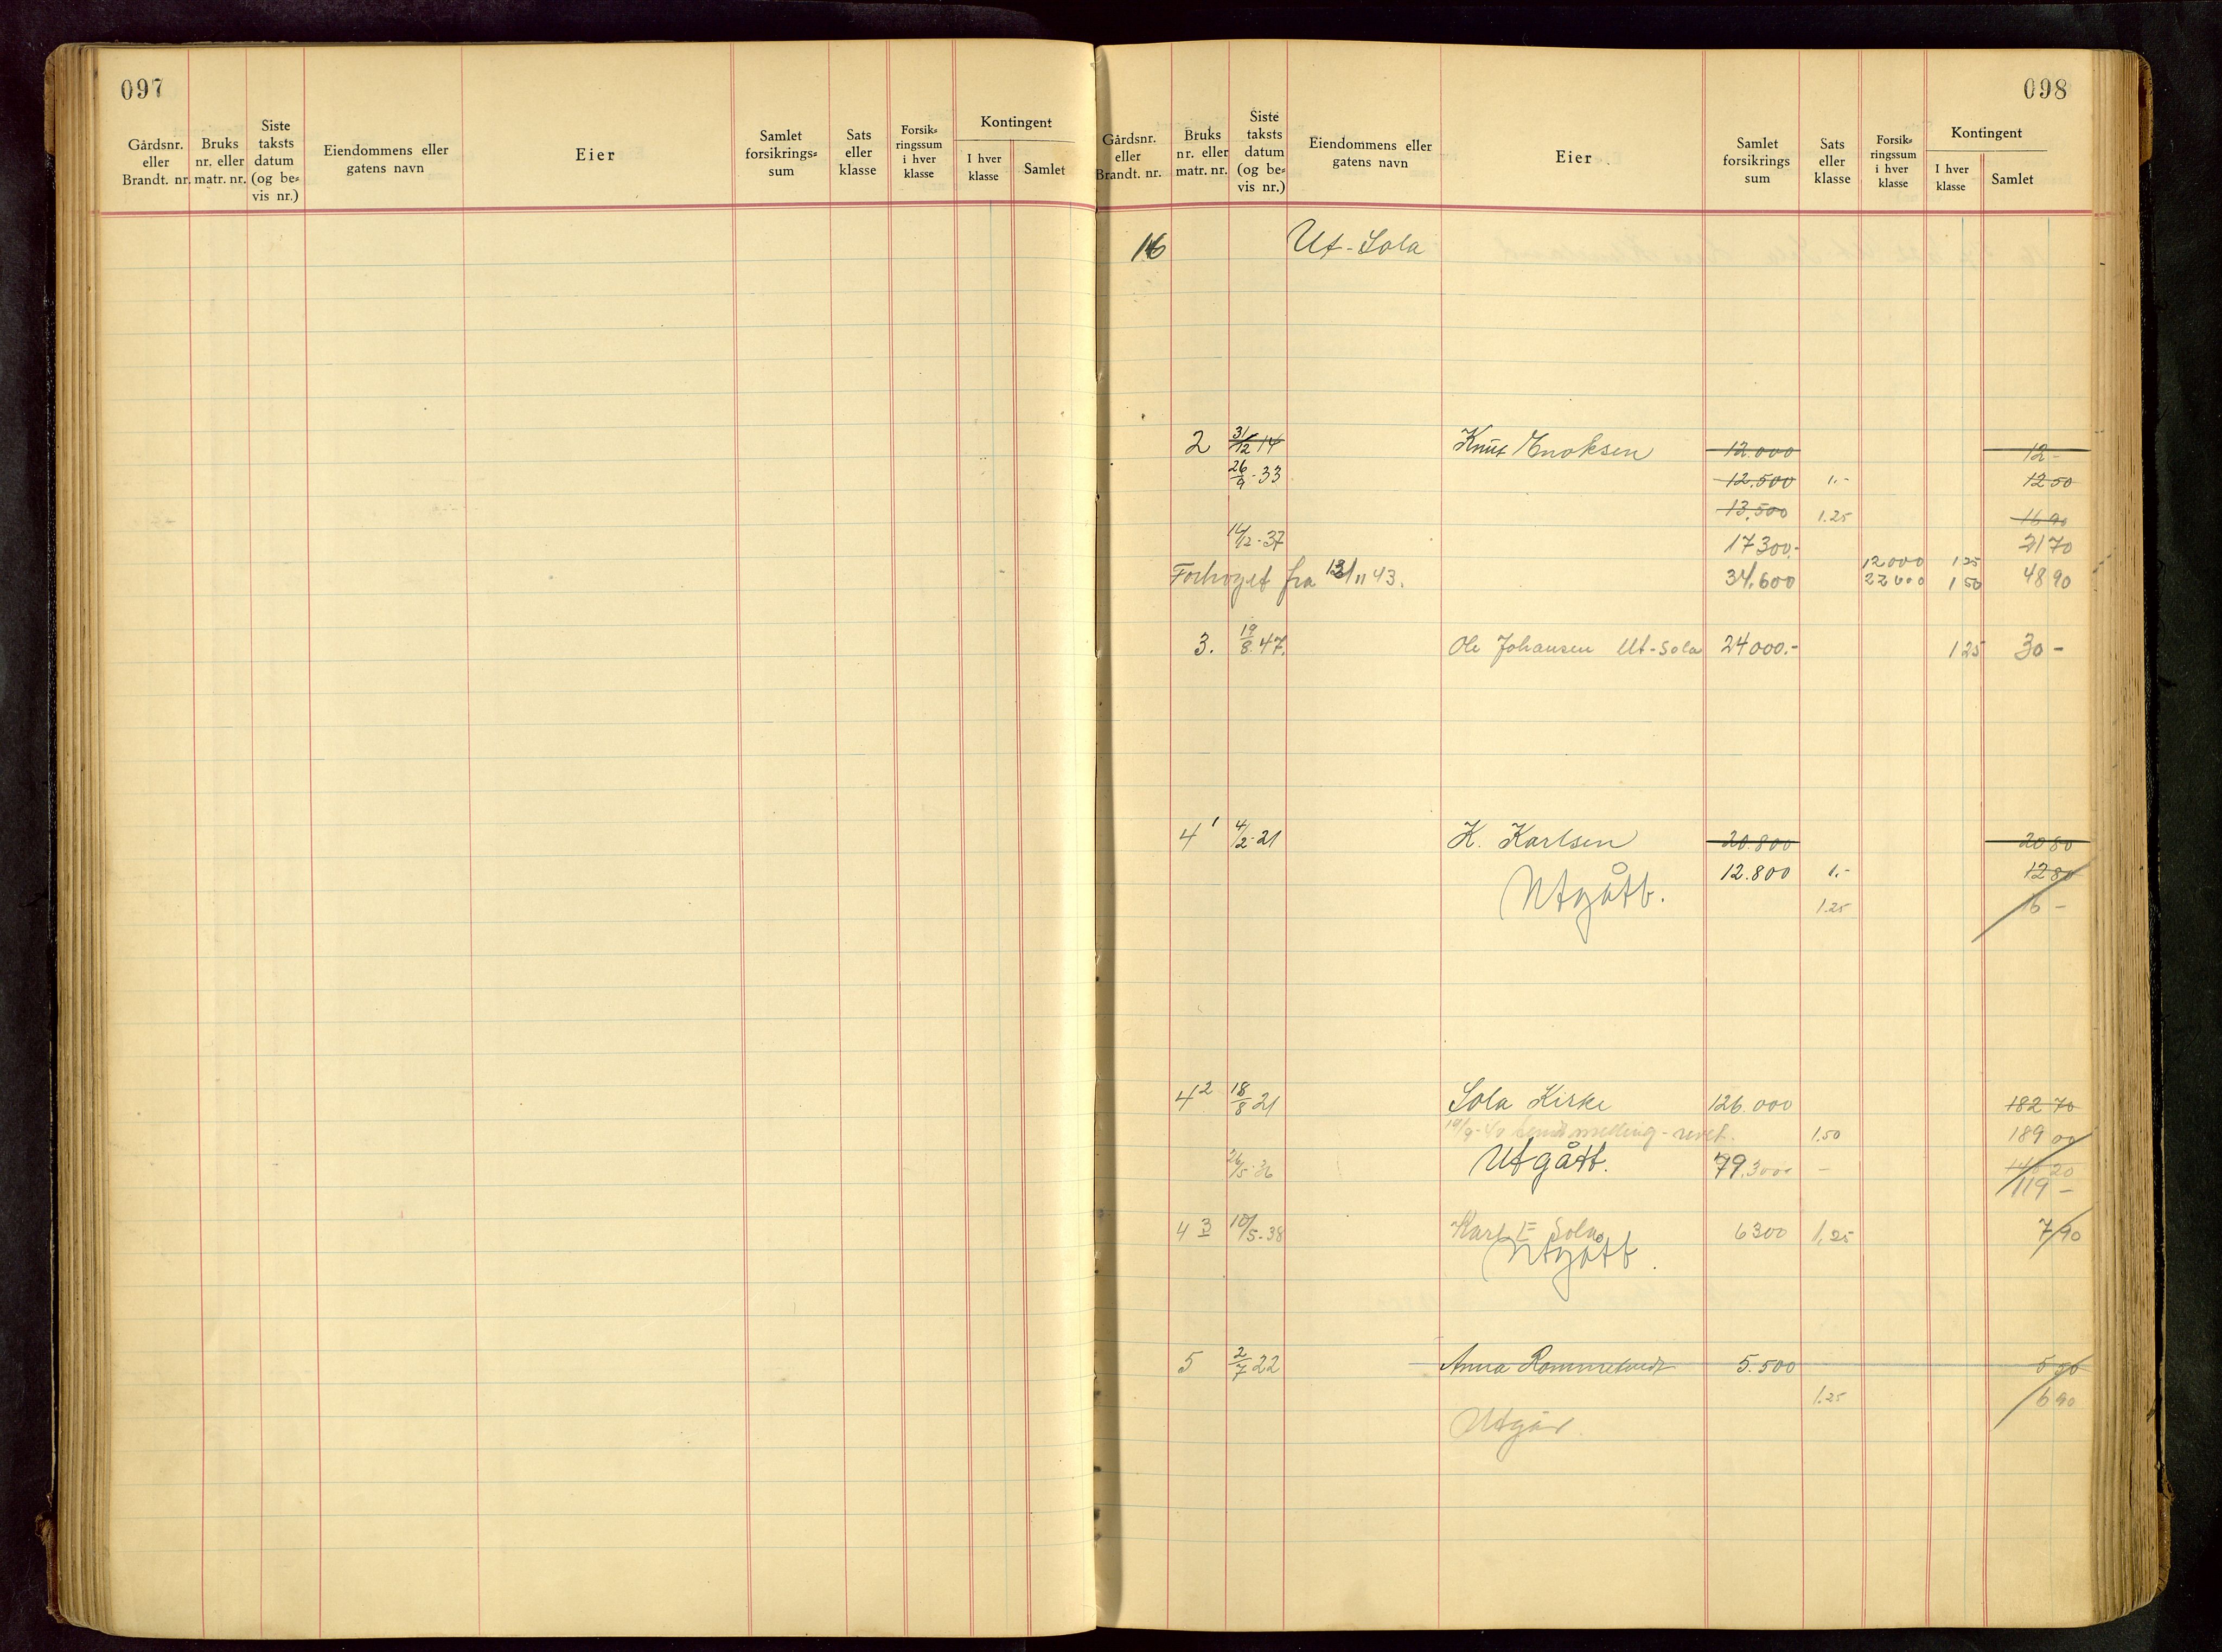 097
Gårdsnr. eller Brandt. nr.
Bruks nr. eller matr. nr.
Siste taksts datum (og be= vis nr.)
Eiendommens eller gatens navn
Eier
Samlet forsikrings= sum
Sats eller klasse
Forsik= ringssum i hver klasse
Kontingent
I hver klasse
Samlet
098
Gårdsnr. eller Brandt. nr.
Bruks nr. eller matr. nr.
Siste taksts datum (og be= vis nr.)
Eiendommens eller gatens navn
Eier
Samlet forsikrings sum
Sats eller klasse
Forsik= ringssum i hver klasse
Kontingent
I hver klasse
Samlet
16 Ut-Sola
2 31/12 14 Knut Enoksen 12.000 12-
26/9-33 12.500 1.- 12 50
13,500 1.25 16 90
14/12-37 17300.- 21 70
12000 1 25
Forhøyet fra 13/11 43. 34.600 22600 1 50 48 90
3. 19/8.47. Ole Johansen Ut-Sola 24000.- 1 25 30 -
4 1 4/2-21 K. Karlsen 20.800 20 80
12.800 1.- 12 80
Utgått. 1.25 16 -
4 2 18/8 21 Sola Kirke 126.000 182 70
1.50 189 00
26/5-36 Utgått. 79.300 - 20
119 -
4 3 10/5-38 Karl E Sola 6300 1,25 7 90
Utgått.
5 2/7 22 Anna 5.500 5 50
1.25 6 90
Utgår